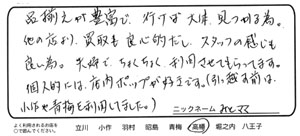 品揃えが豊富で、行けば大体、見つかる為。
他の店より、買取も良心的だし、スタッフの感じも
良い為。夫婦でちょくちょく利用させてもらってます。
個人的には、店内ポップが好きです。(引越す前は、
小作や青梅を利用してました。)
ニックネーム みとママ
よく利用されるお店を
○で囲んでください。
立川 小作 羽村 昭島 青梅 高幡 堀之内 八王子